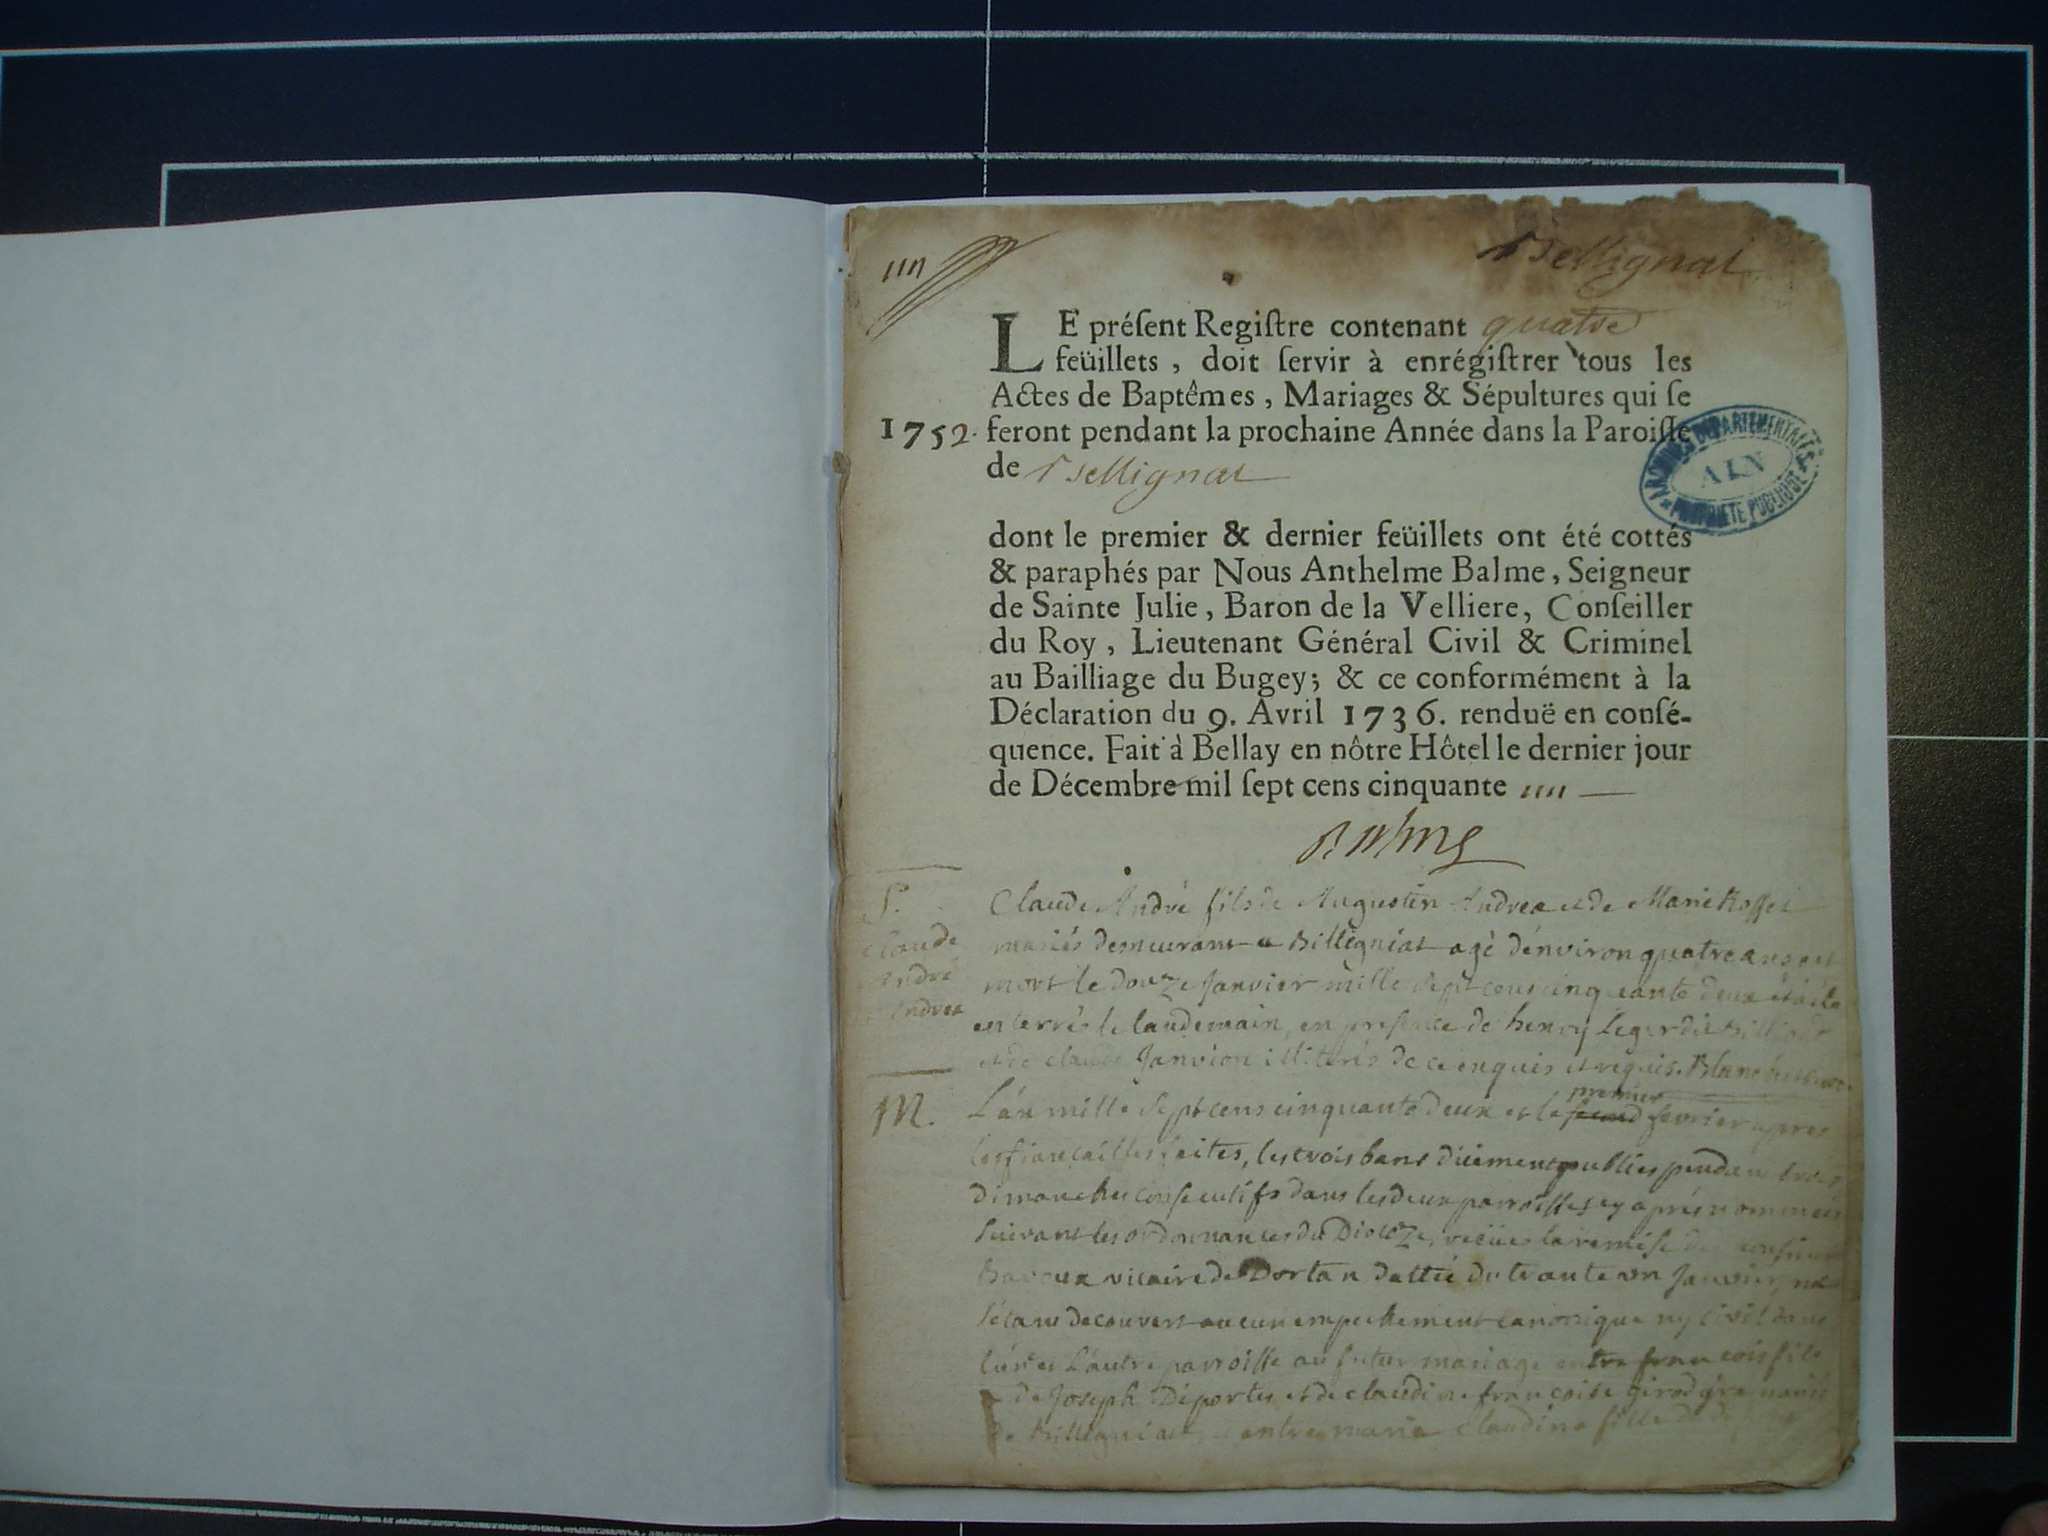 Bellignat
LE préſent Regiſtre contenant quatre
feüillets, doit ſervir à enrégiſtrer tous les
Actes de Baptêmes, Mariages & Sépultures qui ſe
1752. feront pendant la prochaine Année dans la Paroiſſe
de Bellignat
ARCHIVES DEPARTEMENTALES
AIN
PROPRIETE PUBLIQUE
dont le premier & dernier feüillets ont été cottés
& paraphés par Nous Anthelme Balme, Seigneur
de Sainte Julie, Baron de la Velliere, Conſeiller
du Roy, Lieutenant Général Civil & Criminel
au Bailliage du Bugey; & ce conformément à la
Déclaration du 9. Avril 1736. renduë en conſé-
quence. Fait à Bellay en nôtre Hôtel le dernier jour
de Décembre mil ſept cens cinquante un
Balme
S. Claude André fils de Augustin Andrea et de Marie Rosset
Claude mariés demeurant a Billigniat agé d'énviron quatre ans est
André mort le douze Janvier mille sept cens cinquante deux et a été
Andrea enterrés le landemain, en presence de henry Leger dit
et de claude Janvion illiterés de ce enquis et requis. Blanchet
premier
M. L'an mille sept cens cinquante deux et le fevrier apres
les fiancailles faites, les trois bans düement publies pendant trois
dimanches consecutifs dans les deux parroisses cy aprés nommées
suivant les ordonnances du Diocéze, veües la remise de
Bavoux vicaire de Dortan dattée du trante un Janvier, ne
s'étant decouvert aucun empechement canonique ny civil dans
l'úne et l'autre parroisse au futur mariage entre francois fils
de Joseph Déportes et de claudine francoise girod
de Billigniat entre marie Claudine fille de